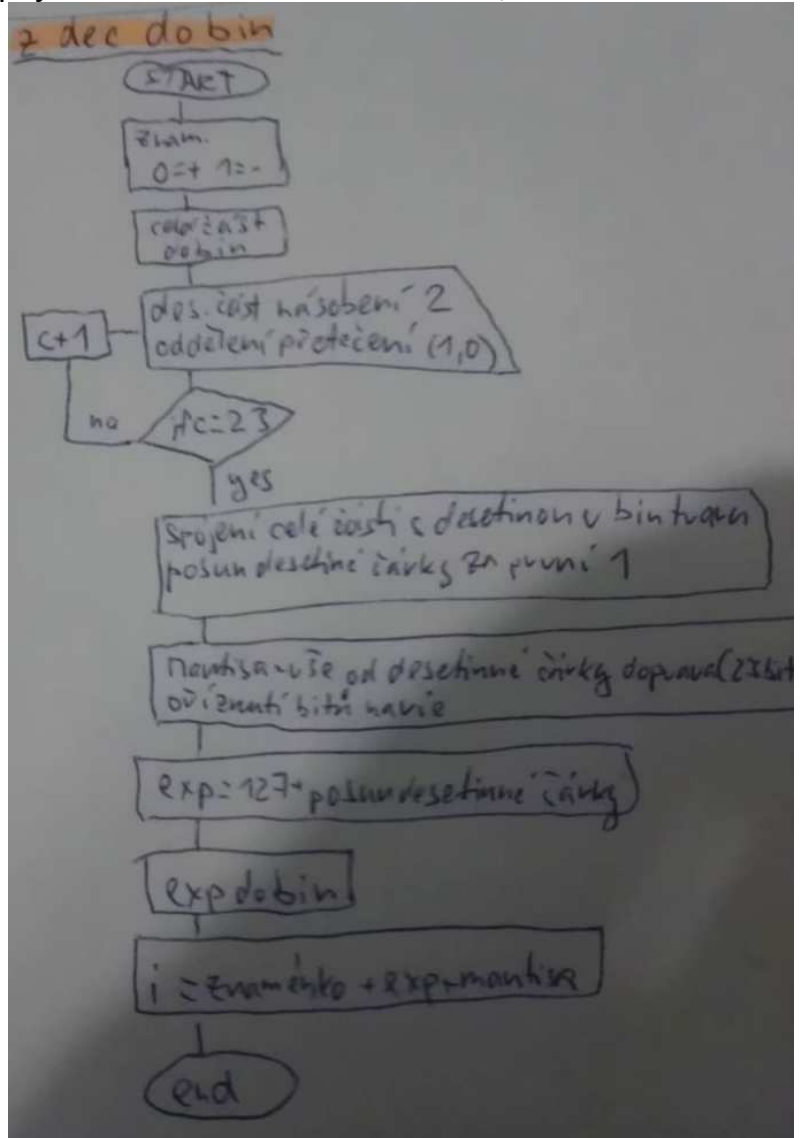 z dec do bin
START
znam.
0=+ 1=-
celá část
do bin
des. část násobení 2
oddělení přetečení (1,0)
c+1
no
if c=23
yes
spojení celé části s desetinou v bin tvaru
posun desetiné čárky za první 1
mantisa-vše od desetinné čárky doprava(23bit
oříznutí bitů navíc
exp=127+posun desetinné čárky
exp do bin
i = znaménko + exp+mantisa
end